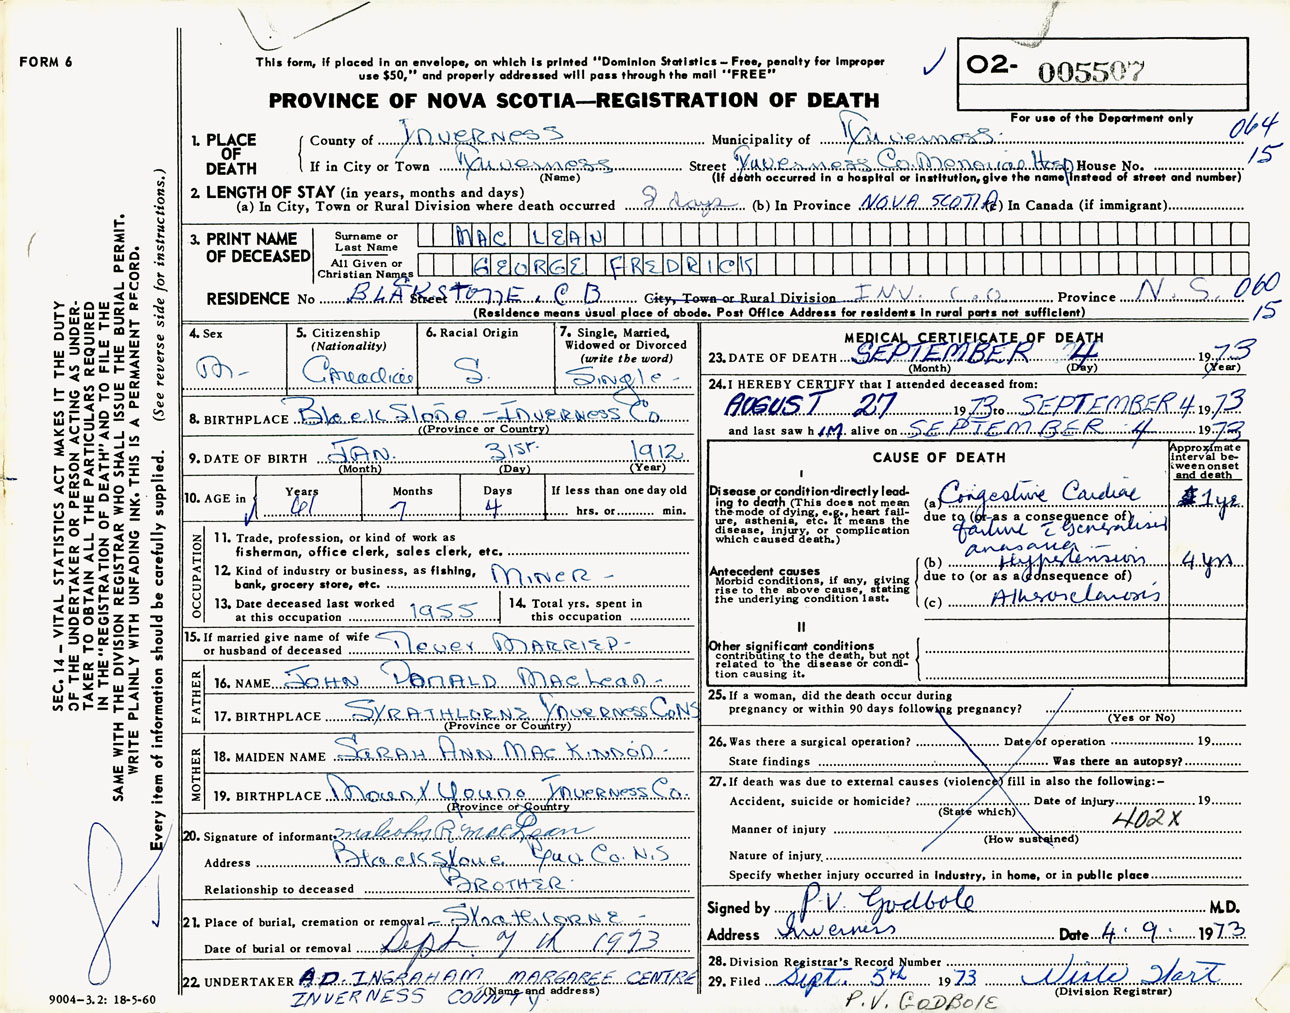 FORM 6
This form, if placed in an envelope, on which is printed "Dominion Statistics – Free, penalty for improper
use $50," and properly addressed will pass through the mail "FREE"
O2- 005507
For use of the Department only
PROVINCE OF NOVA SCOTIA—REGISTRATION OF DEATH
064
15
1. PLACE OF DEATH
County of Inverness Municipality of Inverness
If in City or Town Inverness Street Inverness Co. Memorial Hosp House No.
(Name) (If death occurred in a hospital or institution, give the name instead of street and number)
2. LENGTH OF STAY (in years, months and days)
(a) In City, Town or Rural Division where death occurred 9 days (b) In Province NOVA SCOTIA (c) In Canada (if immigrant)
3. PRINT NAME OF DECEASED
Surname or Last Name MAC LEAN
All Given or Christian Names GEORGE FREDRICK
RESIDENCE No BLAKSTONE. C B Street City, Town or Rural Division INV. CO Province N. S. 060
15
(Residence means usual place of abode. Post Office Address for residents in rural parts not sufficient)
4. Sex M-
5. Citizenship (Nationality) Canadian
6. Racial Origin S.
7. Single, Married, Widowed or Divorced (write the word) Single -
8. BIRTHPLACE BlackStone - Inverness Co
(Province or Country)
9. DATE OF BIRTH JAN. 31st. 1912
(Month) (Day) (Year)
10. AGE in Years 61 Months 7 Days 4 If less than one day old
hrs. or min.
OCCUPATION
11. Trade, profession, or kind of work as
fisherman, office clerk, sales clerk, etc.
12. Kind of industry or business, as fishing,
bank, grocery store, etc. MINER -
13. Date deceased last worked
at this occupation 1955
14. Total yrs. spent in
this occupation
15. If married give name of wife
or husband of deceased Never MARRIED-
FATHER
16. NAME JOHN DONALD MacLean -
17. BIRTHPLACE STRATHLORNE INVERNESS Co NS
(Province or Country)
MOTHER
18. MAIDEN NAME SARAH ANN MAC KINNON-
19. BIRTHPLACE Mount Young INVERNESS Co.
(Province or Country
20. Signature of informant Malcolm R MacLean
Address BlackStone Inv Co. N.S
Relationship to deceased BROTHER-
21. Place of burial, cremation or removal - Strathlorne -
Date of burial or removal Sept 7 th 1973
22. UNDERTAKER A.D. INGRAHAM MARGAREE CENTRE
(Name and address)
INVERNESS COUNTY
MEDICAL CERTIFICATE OF DEATH
23. DATE OF DEATH SEPTEMBER 4 1973
(Month) (Day) (Year)
24. I HEREBY CERTIFY that I attended deceased from:
AUGUST 27 1973 to SEPTEMBER 4 1973
and last saw h IM alive on SEPTEMBER 4 1973
CAUSE OF DEATH
Approximate interval between onset and death
I
Disease or condition directly leading to death (This does not mean the mode of dying, e.g., heart failure, asthenia, etc. It means the disease, injury, or complication which caused death.)
(a) Congestive Cardiac 1 yr
due to (or as a consequence of)
failure c Generalised
anasarca
Antecedent causes
Morbid conditions, if any, giving rise to the above cause, stating the underlying condition last.
(b) Hypertension 4 yrs
due to (or as a consequence of)
(c) Atherosclerosis
II
Other significant conditions
contributing to the death, but not related to the disease or condition causing it.
25. If a woman, did the death occur during
pregnancy or within 90 days following pregnancy?
(Yes or No)
26. Was there a surgical operation? Date of operation 19
State findings Was there an autopsy?
27. If death was due to external causes (violence) fill in also the following:–
Accident, suicide or homicide? Date of injury 19
(State which)
402X
Manner of injury
(How sustained)
Nature of injury
Specify whether injury occurred in industry, in home, or in public place
Signed by P.V. Godbole M.D.
Address Inverness Date 4. 9. 1973
28. Division Registrar's Record Number
29. Filed Sept. 5th 1973
(Division Registrar)
P.V. GODBOLE
9004-3.2: 18-5-60
SEC. 14 – VITAL STATISTICS ACT MAKES IT THE DUTY
OF THE UNDERTAKER OR PERSON ACTING AS UNDER-
TAKER TO OBTAIN ALL THE PARTICULARS REQUIRED
IN THE "REGISTRATION OF DEATH" AND TO FILE THE
SAME WITH THE DIVISION REGISTRAR WHO SHALL ISSUE THE BURIAL PERMIT.
WRITE PLAINLY WITH UNFADING INK. THIS IS A PERMANENT RECORD.
Every item of information should be carefully supplied. (See reverse side for instructions.)